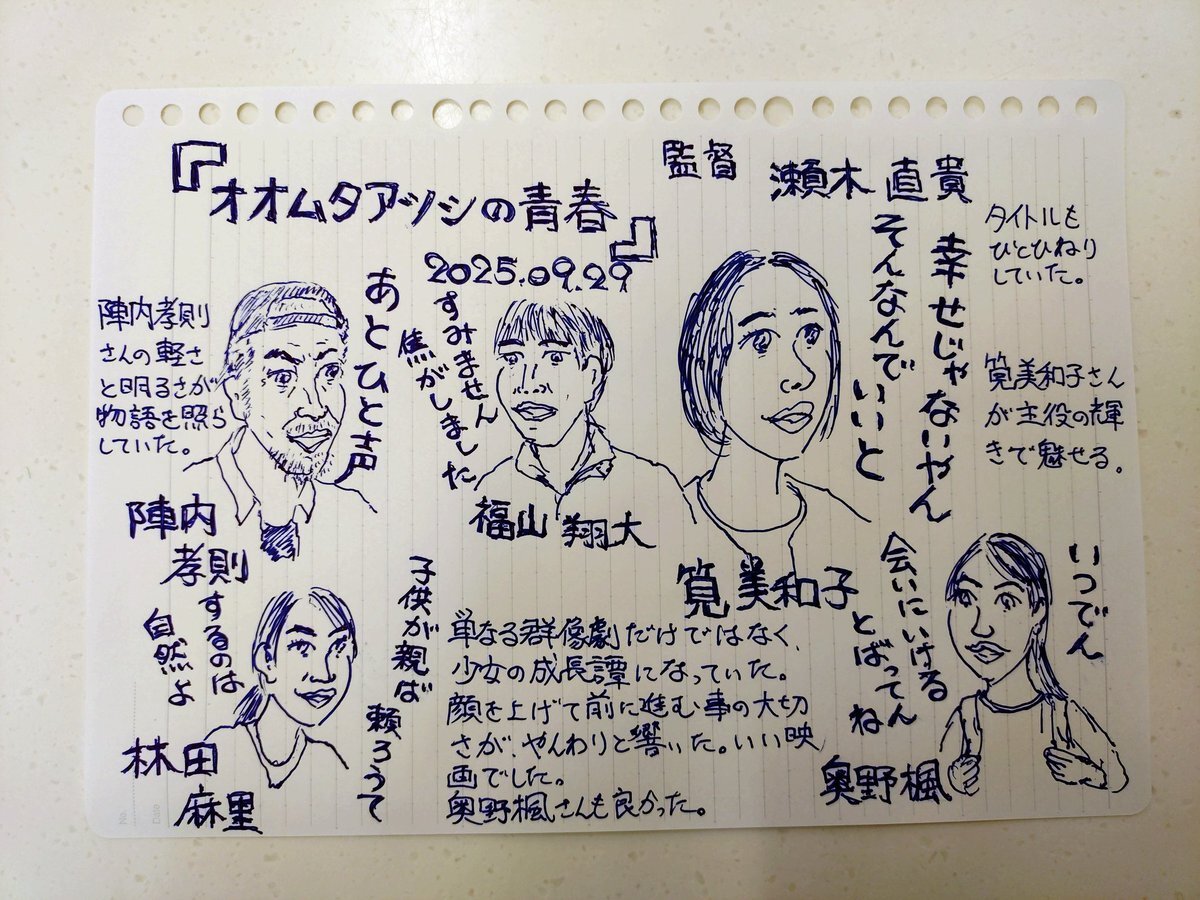 『オオムタアツシの青春』
2025.09.29
監督 瀬木 直貴
タイトルも
ひとひねり
していた。
陣内孝則
さんの軽さ
と明るさが
物語を照ら
していた。
あとひと声
陣内
孝則
すみません
焦がしました
福山 翔大
幸せじゃないやん
そんなんでいいと
筧 美和子
筧美和子さん
が主役の輝
きで魅せる。
子供が親ば
頼ろうて
するのは
自然よ
林田
麻里
単なる群像劇だけではなく、
少女の成長譚になっていた。
顔を上げて前に進む事の大切
さが、やんわりと響いた。いい映
画でした。
奥野楓さんも良かった。
いつでん
会いにいける
とばってんね
奥野楓
No.
Date